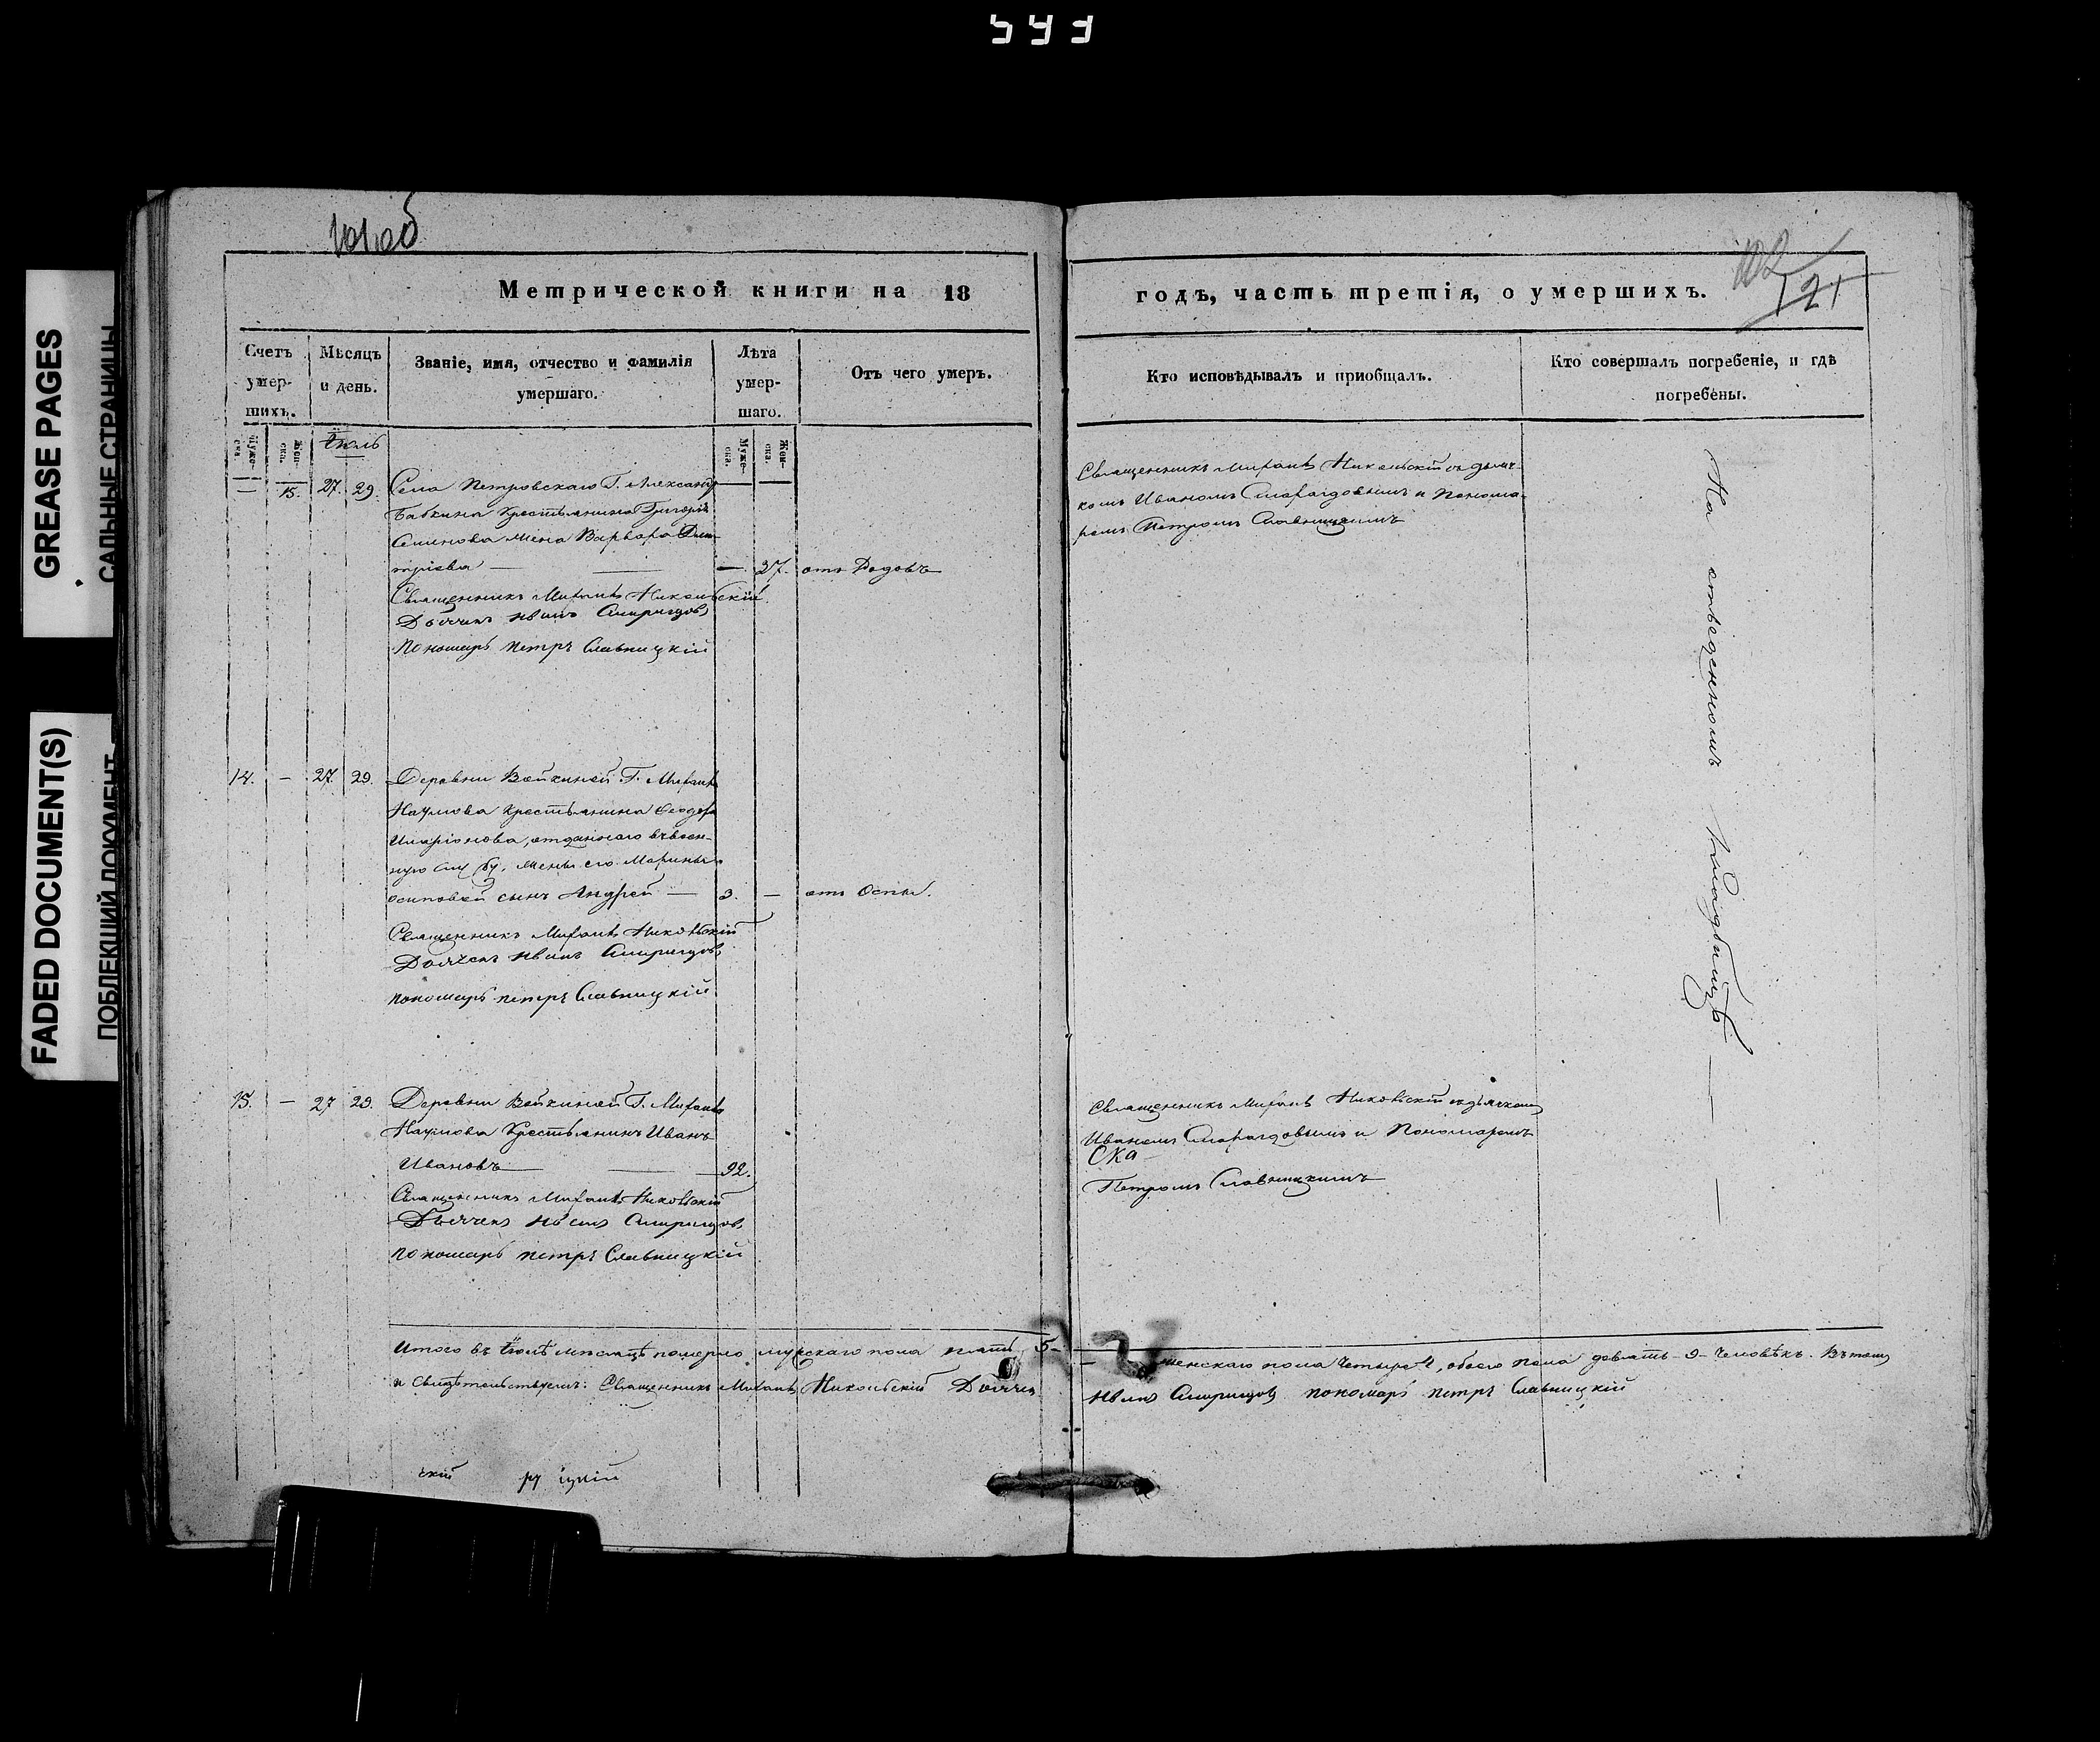 543
101 об
102
121
GREASE PAGES
САЛЬНЫЕ СТРАНИЦЫ
FADED DOCUMENT(S)
ПОБЛЕКШИЙ ДОКУМЕНТ
Метрической книги на 18
годъ, часть третія, о умершихъ.
Счетъ умер-шихъ.
Мѣсяцъ и день.
Званіе, имя, отчество и фамилія умершаго.
Лѣта умер-шаго.
Отъ чего умеръ.
Кто исповѣдывалъ и пріобщалъ.
Кто совершалъ погребеніе, и гдѣ погребены.
Муже-ска.
Жен-ска.
Муже-ска.
Жен-ска.
Іюль
— 15. 27. 29. Села Петровскаго Г. Александр
Бабкина Крестьянина Григорія
Семенова жена Варвара Дми-
тріева — — — 37. отъ Родовъ
Священникъ Никольскій
Дьячекъ Иванъ Смарагдовъ
Пономарь Петръ Славницкій
Священникъ Никольскій съ дьяч-
комъ Иваномъ Смарагдовымъ и Понома-
ремъ Петромъ Славницкимъ
14. — 27. 29. Деревни Вейкиной Г.
Наумова Крестьянина Ѳеодора
Иларіонова, отданнаго въ воен-
ную службу, жены его Марины
Осиповой сынъ Андрей — 3. — отъ Оспы.
Священникъ Никольскій
Дьячекъ Иванъ Смарагдовъ
Пономарь Петръ Славницкій
15. — 27 29. Деревни Вейкиной Г.
Наумова Крестьянинъ Иванъ
Ивановъ — — 92.
Священникъ Никольскій
Дьячекъ Иванъ Смарагдовъ
Пономарь Петръ Славницкій
Священникъ Никольскій съ дьячкомъ
Иваномъ Смарагдовымъ и Пономаремъ
Петромъ Славницкимъ
На отведенномъ кладбищѣ — —
Итого въ Іюлѣ мѣсяцѣ померло мужскаго пола пять 5 — женскаго пола четыре 4, обоего пола девять 9 человѣкъ. Въ томъ
и свидѣтельствуемъ: Священникъ Никольскій Дьячекъ Иванъ Смарагдовъ Пономарь Петръ Славницкій
скій цкій